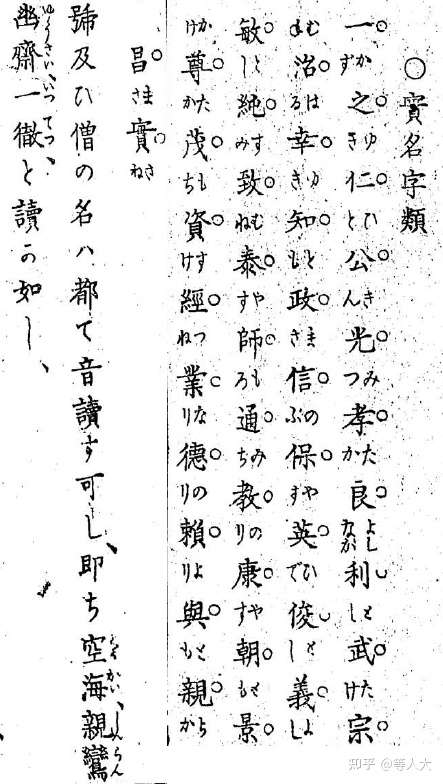 〇實名字類
一かず之ゆき仁ひと公きん光みつ孝たか良よしなが利とし武たけ宗
むね治はる幸ゆき知とも政まさ信のぶ保やす英ひで俊とし義よし
敏とし純すみ致むね泰やす師もろ通みち教のり康やす朝とも景
かけ尊たか茂もち資すけ經つね業なり德のり賴より與とも親ちか
昌まさ實さね
號及ひ僧の名ハ都て音讀す可し、即ち空海親鸞
幽齋一徹と讀か如し、
知乎 @等人大